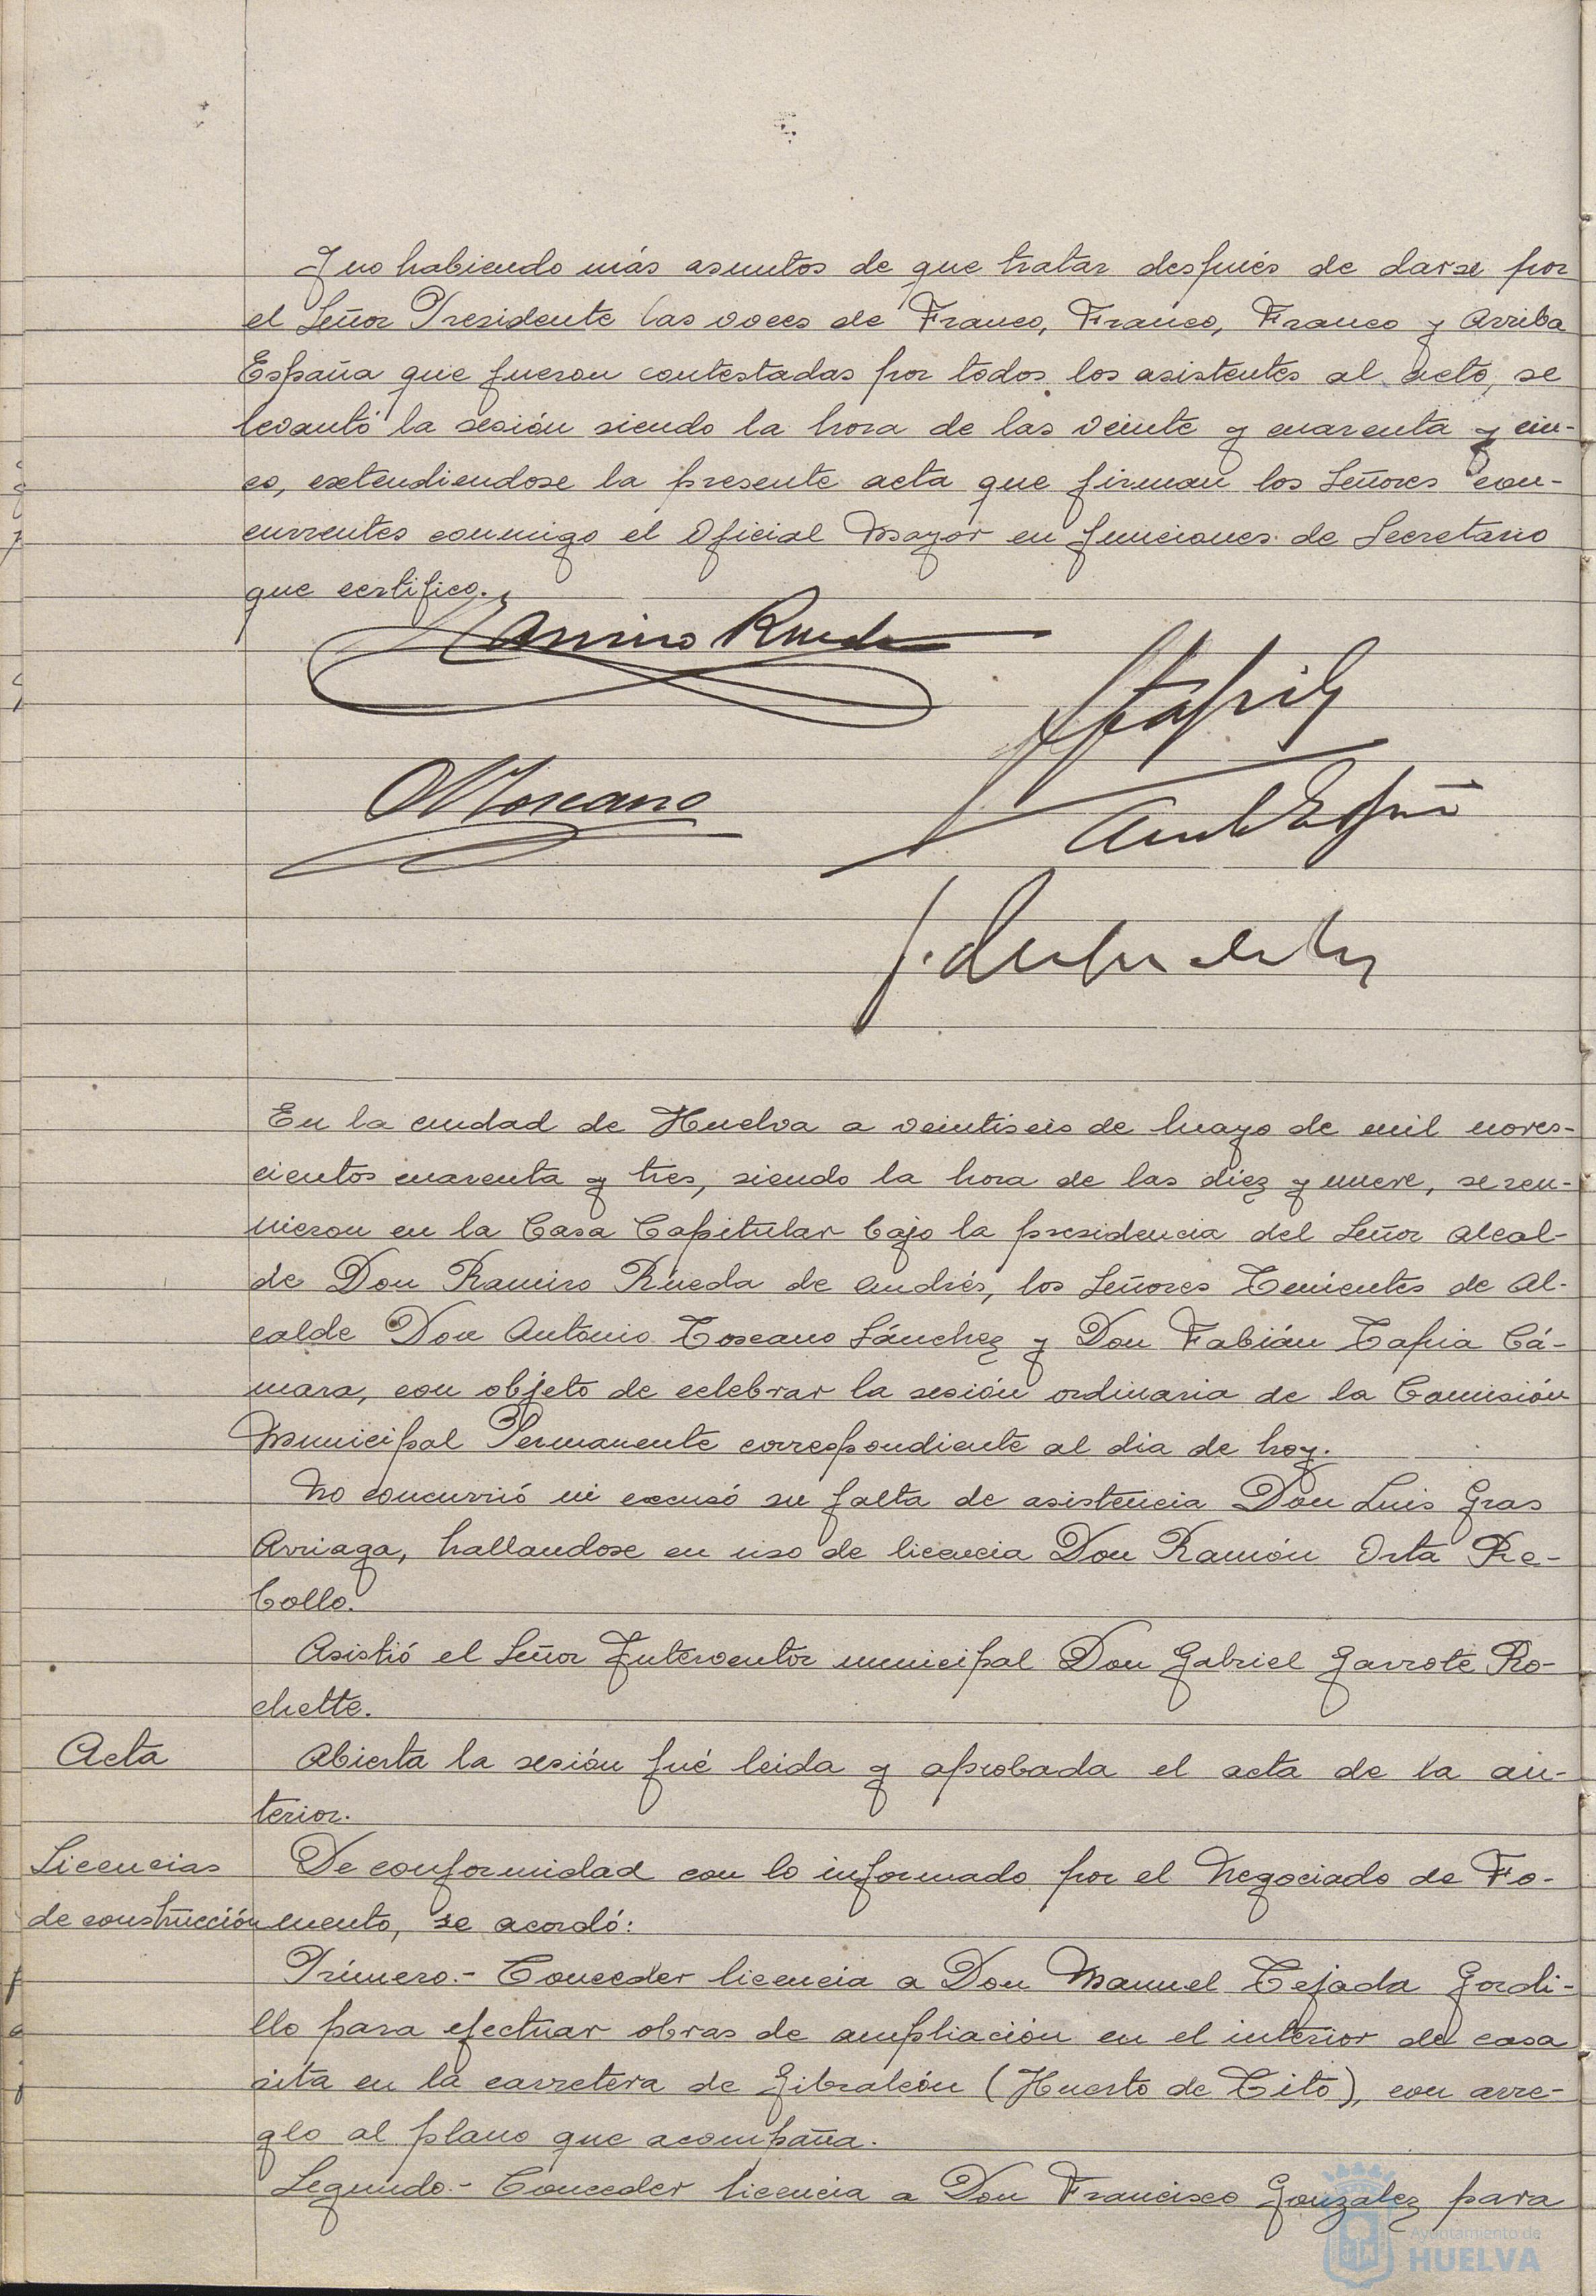 Y no habiendo más asuntos de que tratar después de darse por
el Señor Presidente las voces de Franco, Franco, Franco y Arriba
España que fueron contestadas por todos los asistentes al acto, se
levantó la sesión siendo la hora de las veinte y cuarenta y cin-
co, extendiendose la presente acta que firman los Señores con-
currentes conmigo el Oficial Mayor en funciones de Secretario
que certifico.
Ramiro Rueda
Toscano
En la ciudad de Huelva a veintiseis de mayo de mil noves-
cientos cuarenta y tres, siendo la hora de las diez y nueve, se reu-
nieron en la Casa Capitular bajo la presidencia del Señor Alcal-
de Don Ramiro Rueda de Andrés, los Señores Tenientes de Al-
calde Don Antonio Toscano Sánchez y Don Fabián Tapia Cá-
mara, con objeto de celebrar la sesión ordinaria de la Comisión
Municipal Permanente correspondiente al dia de hoy.
No concurrió ni excusó su falta de asistencia Don Luis Gras
Arriaga, hallandose en uso de licencia Don Ramón Orta Re-
bollo.
Asistió el Señor Interventor municipal Don Gabriel Garrote Ro-
chette.
Acta
Abierta la sesión fué leida y aprobada el acta de la an-
terior.
Licencias
de construcción
De conformidad con lo informado por el Negociado de Fo-
mento, se acordó:
Primero.- Conceder licencia a Don Manuel Tejada Gordi-
llo para efectuar obras de ampliación en el interior de casa
sita en la carretera de Gibraleón (Huerto de Tito), con arre-
glo al plano que acompaña.
Segundo.- Conceder licencia a Don Francisco González para
Ayuntamiento de
HUELVA